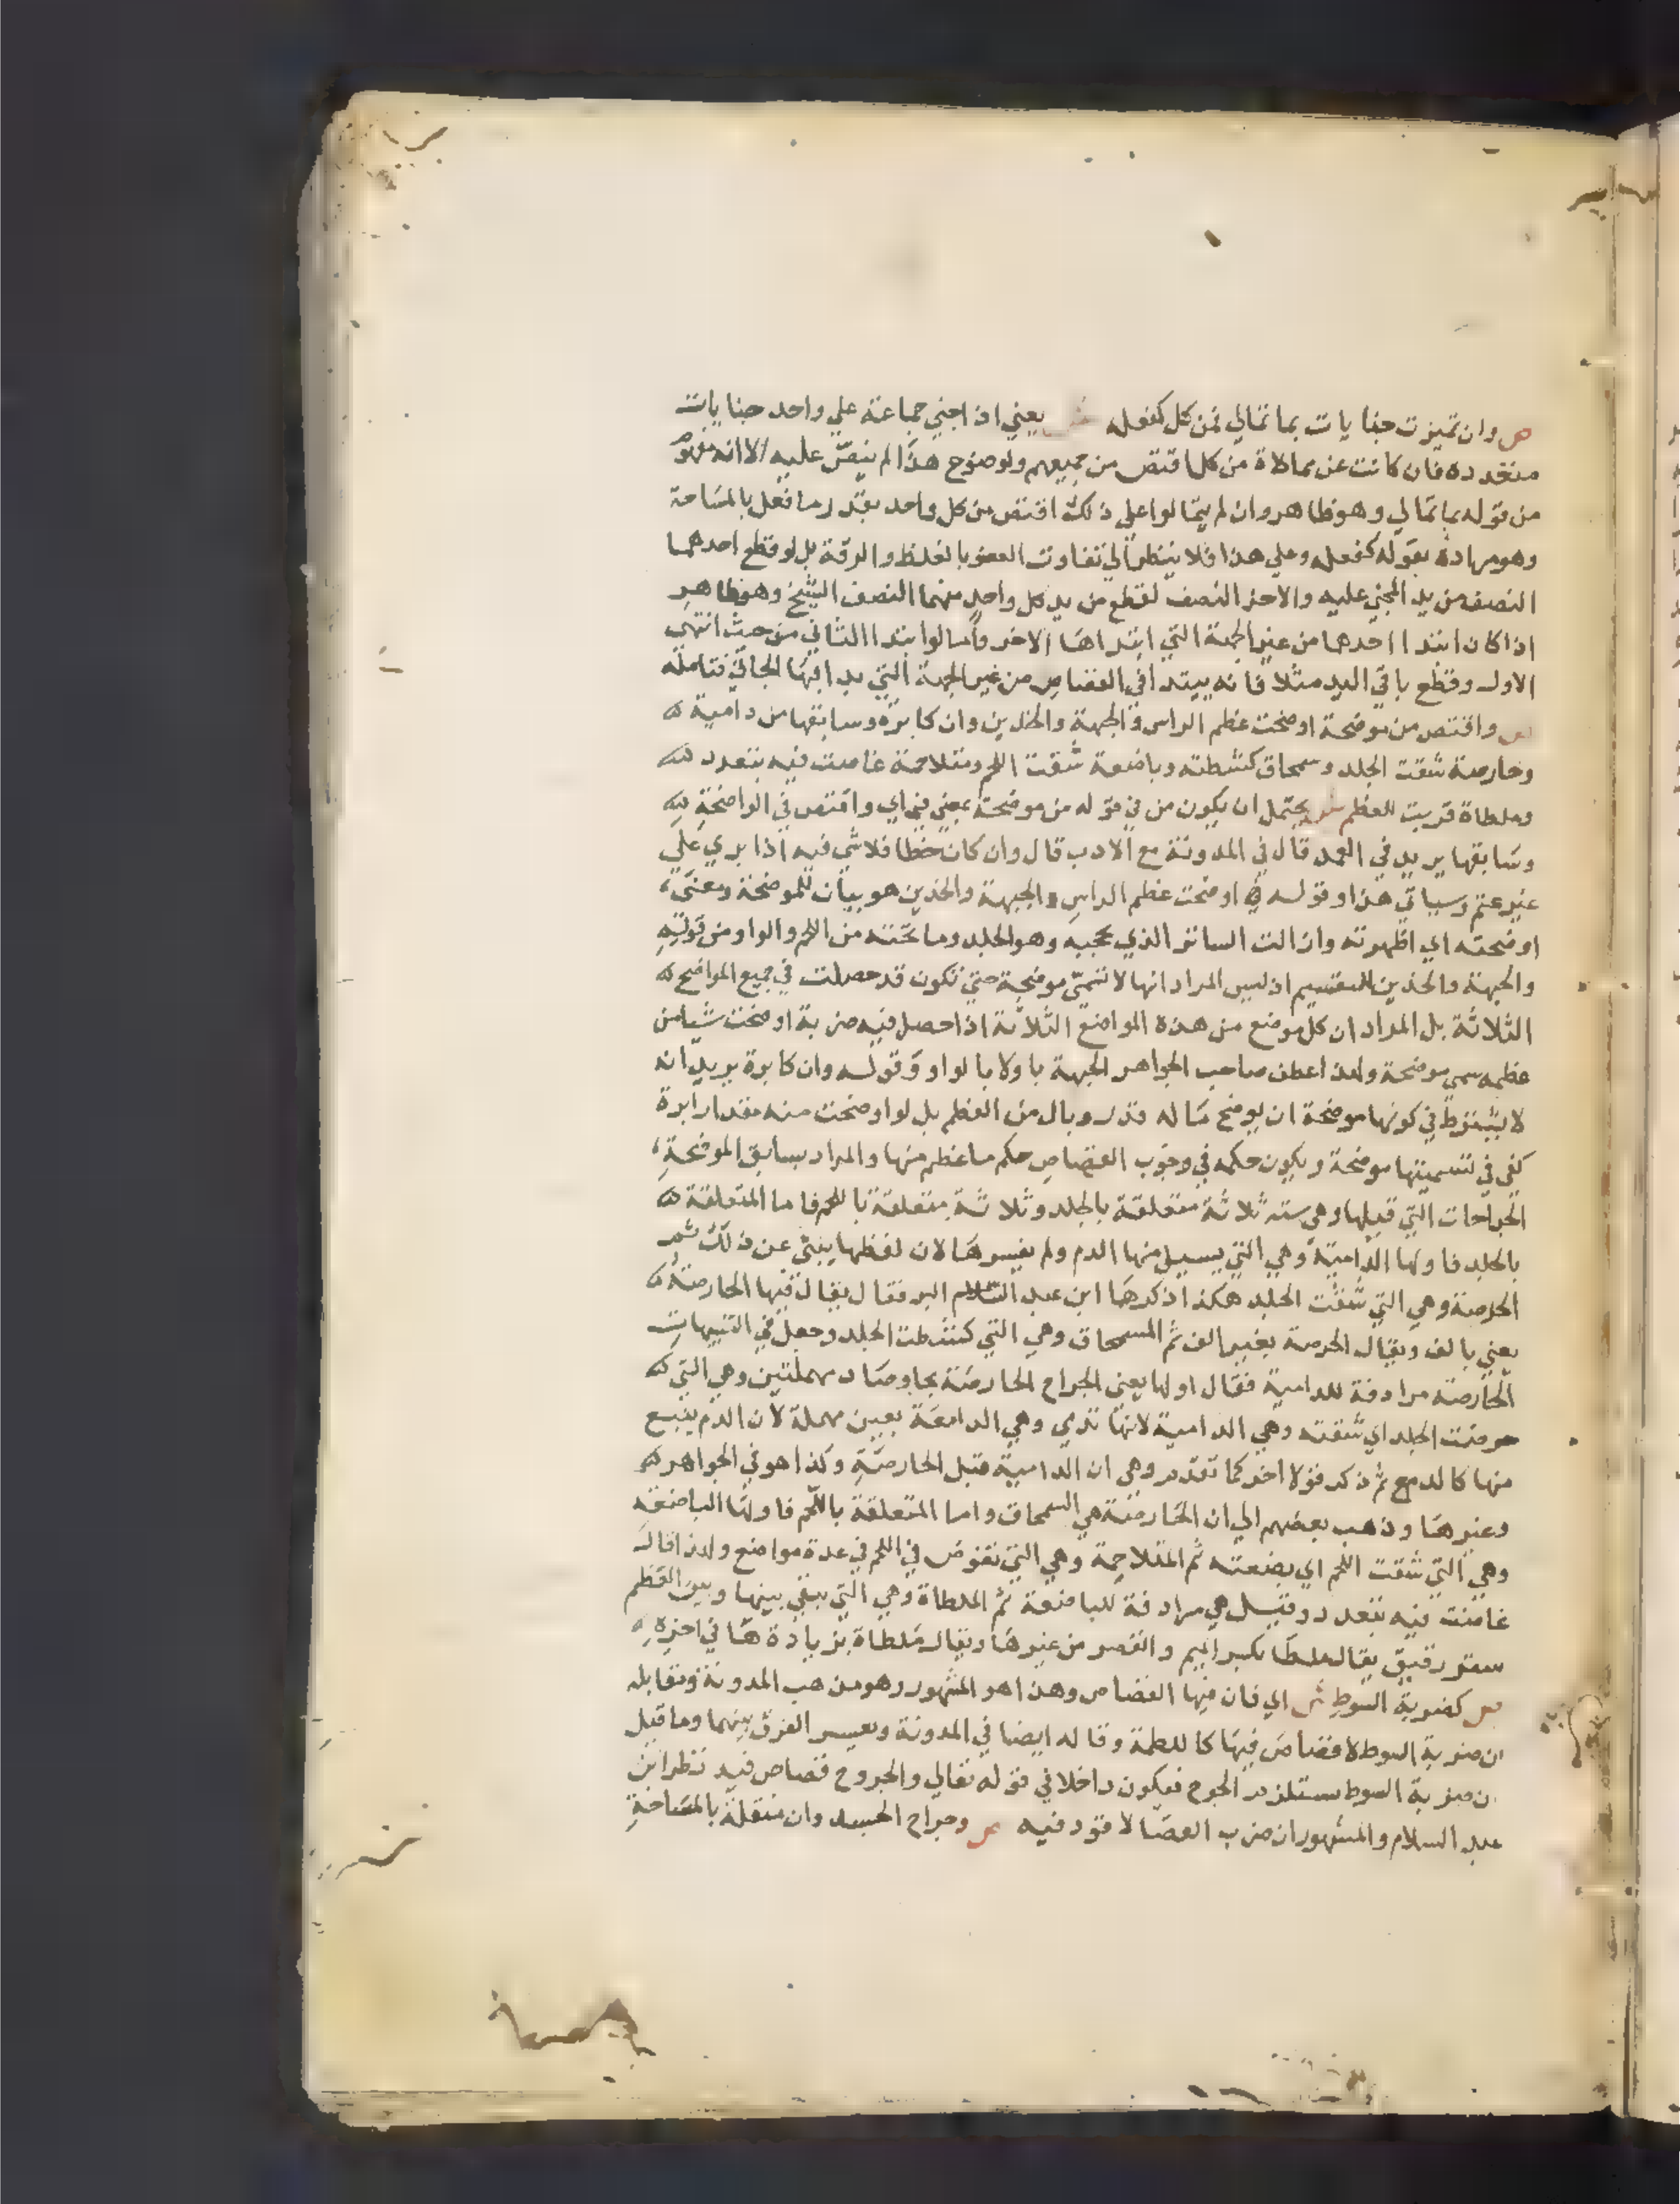 ص وان تميزت جنايات بما تمالي فمن كل كفعله ش يعني اذا جني جماعة علي واحد جنايات
متعدده فان كانت عن ممالاة من كل اقتص من جميعهم ولوضوح هذا لم ينص عليه الا انه مفهوم
من قوله بما تمالي وهو ظاهر وان لم يتمالوا علي ذلك اقتص من كل واحد بقدر ما فعل بالمساحة
وهو مراده بقوله كفعله وعلي هذا فلا ينظر الي تفاوت العضو بالغلظ والرقة بل لو قطع احدهما
النصف من يد المجني عليه والاخر النصف لقطع من يد كل واحد منهما النصف الشيخ وهو ظاهر
اذا كان ابتدا احدهما من غير الجهة التي ابتداها الاخر واما لو ابتدا الثاني من حيث انتهي
الاول وقطع باقي اليد مثلا فانه يبتدا في القصاص من غير الجهة التي بدا فيها الجاني فتامله
ص واقتص من موضحة اوضحت عظم الراس والجبهة والخدين وان كابرة وسابقها من دامية
وحارصة شقت الجلد وسمحاق كشطته وباضعة شقت اللحم ومتلاحمة غاصت فيه بتعدد
وملطاة قربت للعظم ش يحتمل ان يكون من في قوله من موضحة بمعني في اي واقتص في الواضحة
وسابقها يريد في العمد قال في المدونة مع الادب قال وان كان خطا فلا شي فيه اذا بري علي
غير عثم وسياتي هذا وقوله اوضحت عظم الراس والجبهة والخدين هو بيان للموضحة ومعني
اوضحته اي اظهرته وازالت الساتر الذي يحجبه وهو الجلد وما تحته من اللحم والواو من قوله
والجبهة والخدين للتقسيم اذ ليس المراد انها لا تسمي موضحة حتي تكون قد حصلت في جميع المواضع
الثلاثة بل المراد ان كل موضع من هذه المواضع الثلاثة اذا حصل فيه ضربة اوضحت شيا من
عظمه سمي موضحة ولهذا عطف صاحب الجواهر الجبهة باو لا بالواو وقوله وان كابرة يريد انه
لا يشترط في كونها موضحة ان يوضح ما له قدر وبال من العظم بل لو اوضحت منه مقدار ابرة
كفي في تسميتها موضحة ويكون حكمه في وجوب القصاص حكم ما عظم منها والمراد بسابق الموضحة
الجراحات التي قبلها وهي ستة ثلاثة متعلقة بالجلد وثلاثة متعلقة باللحم فاما المتعلقة
بالجلد فاولها الدامية وهي التي يسيل منها الدم ولم يفسرها لان لفظها ينبئ عن ذلك ثم
الحرصة وهي التي شقت الجلد هكذا ذكرها ابن عبد السلام البر فقال يقال فيها الحارصة
يعني بالف ويقال الحرصة بغير الف ثم السمحاق وهي التي كشطت الجلد وجعل في التنبيهات
الحارصة مرادفة للدامية فقال اولها يعني الجراح الحارصة بحا وصاد مهملتين وهي التي
حرصت الجلد اي شقته وهي الدامية لانها تدمي وهي الدامعة بعين مهملة لان الدم ينبع
منها كالدمع ثم ذكر قولا اخر كما تقدم وهي ان الدامية قبل الحارصة وكذا هو في الجواهر
وغيرها وذهب بعضهم الي ان الحارصة هي السمحاق واما المتعلقة باللحم فاولها الباضعة
وهي التي شقت اللحم اي بضعته ثم المتلاحمة وهي التي تغوص في اللحم في عدة مواضع ولهذا قال
غاصت فيه بتعدد وقيل هي مرادفة للباضعة ثم الملطاة وهي التي يبقي بينها وبين العظم
ستر رقيق يقال ملطا بكسر الميم والقصر من غيرها ويقال ملطاة بزيادة ها في اخره
ص كضربة السوط ش اي فان فيها القصاص وهذا هو المشهور وهو مذهب المدونة ومقابله
ان ضربة السوط لا قصاص فيها كاللطمة وقاله ايضا في المدونة وبعسر الفرق بينهما وما قيل
ان ضربة السوط يستلزم الجرح فيكون داخلا في قوله تعالي والجروح قصاص فيه نظر ابن
عبد السلام والمشهور ان ضرب العصا لا قود فيه ص وجراح الجسد وان منقلة بالمساحة